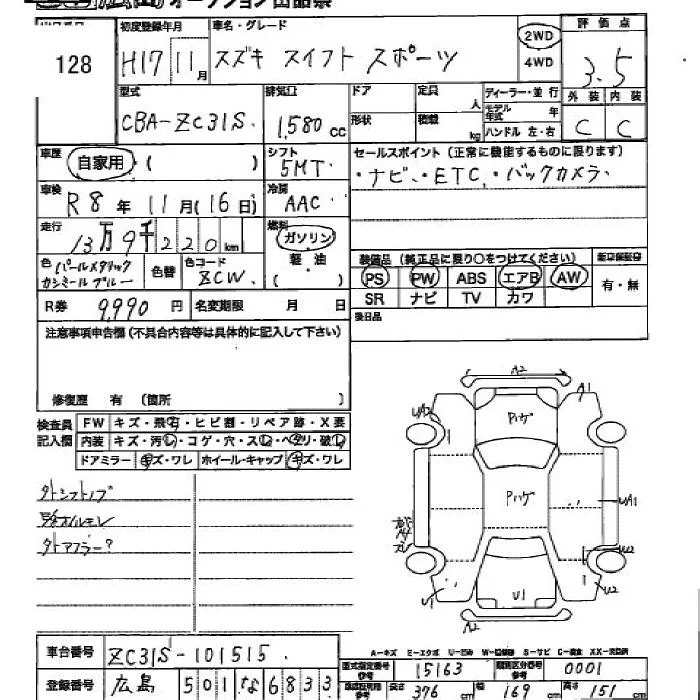 広島 オークション出品票
128
初度登録年月
H17 11月
車名・グレード
スズキ スイフト スポーツ
2WD
4WD
評価点
3.5
外装 内装
C C
型式
CBA-ZC31S
排気量
1,580 cc
ドア
形状
定員 人
積載 kg
ディーラー・並行
モデル年式 年
ハンドル 左・右
車歴
自家用・( )
シフト
5MT
セールスポイント (正常に機能するものに限ります)
・ナビ・ETC・バックカメラ
車検
R8年 11月(16日)
冷房
AAC
走行
13万9千220km
燃料
ガソリン
軽油
( )
色
パールメタリック
カシミールブルー
色替
色コード
ZCW
装備品 (純正品に限り○をつけてください)
PS PW ABS エアB AW
SR ナビ TV カワ
新車保証書
有・無
R券 9,990 円
名変期限 月 日
後日品
注意事項申告欄 (不具合内容等は具体的に記入して下さい)
修復歴 有 (箇所 )
検査員
記入欄
FW キズ・飛石・ヒビ割・リペア跡・X要
内装 キズ・汚レ・コゲ・穴・スレ・ヘタリ・破レ
ドアミラー キズ・ワレ ホイール・キャップ キズ・ワレ
外シフトノブ
外マフラー?
A2
A1
UA2
Pハゲ
Pハゲ
UA1
U2
U1
U1
U2
A2
A-キズ E-エクボ U-凹み W-補修跡 S-サビ C-腐食 XX-交換済
車台番号 ZC31S-101515
型式指定番号 参考 15163
類別区分番号 参考 0001
登録番号 広島 501 な 6833
長さ 376 cm 幅 169 cm 高さ 151 cm